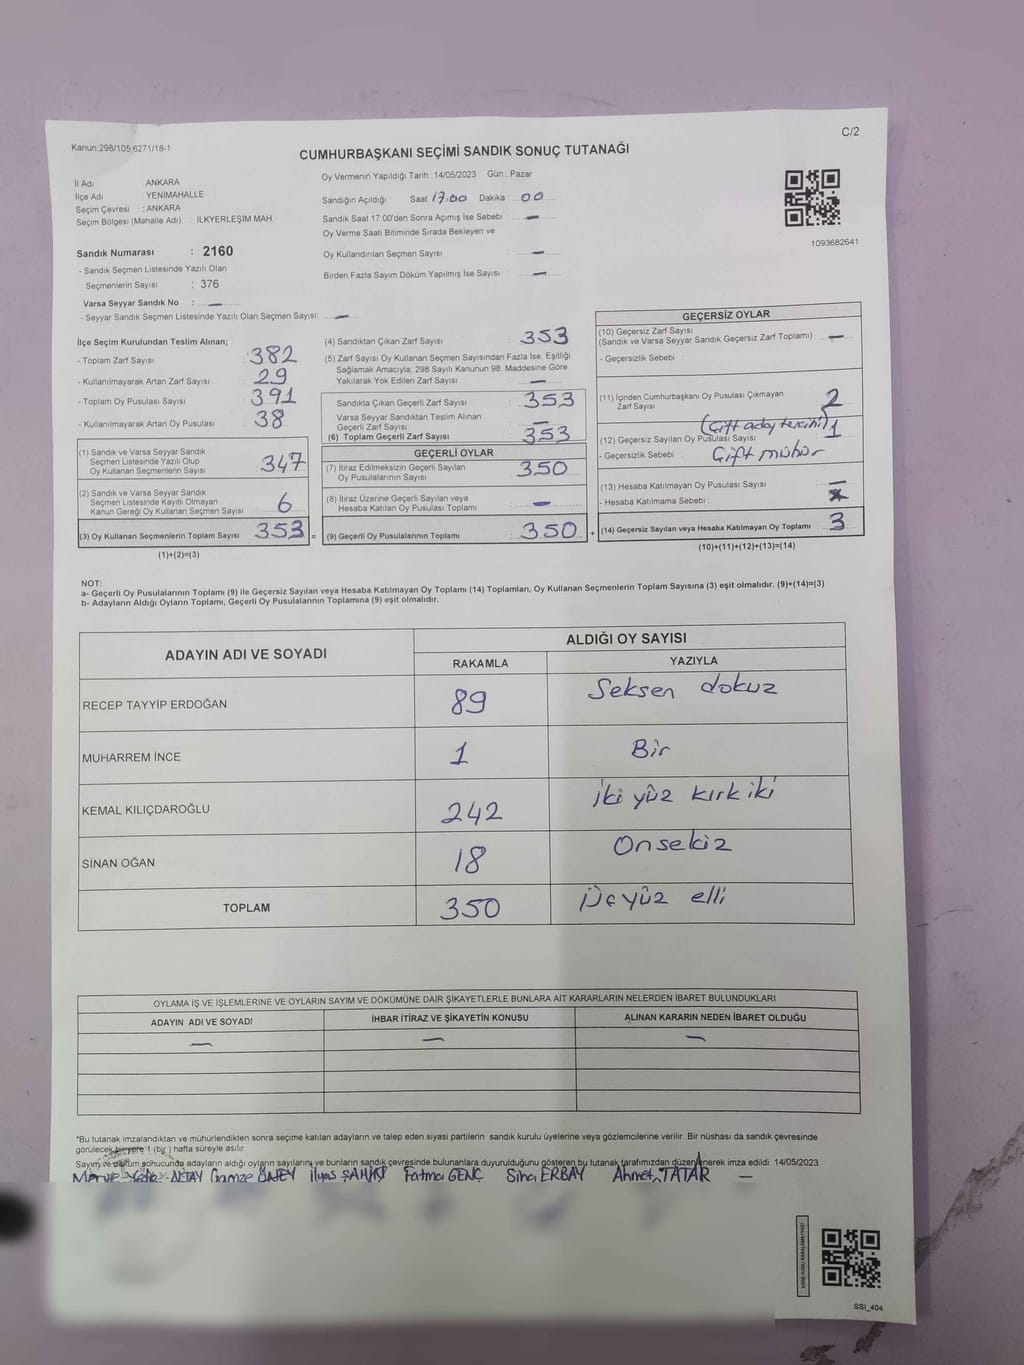 C/2
Kanun:298/105,6271/18-1
CUMHURBAŞKANI SEÇİMİ SANDIK SONUÇ TUTANAĞI
İl Adı : ANKARA
İlçe Adı : YENİMAHALLE
Seçim Çevresi : ANKARA
Seçim Bölgesi (Mahalle Adı) : İLKYERLEŞİM MAH.
Sandık Numarası : 2160
- Sandık Seçmen Listesinde Yazılı Olan
Seçmenlerin Sayısı : 376
Varsa Seyyar Sandık No : —
- Seyyar Sandık Seçmen Listesinde Yazılı Olan Seçmen Sayısı: —
Oy Vermenin Yapıldığı Tarih : 14/05/2023 Gün : Pazar
Sandığın Açıldığı Saat 17:00 Dakika : 00
Sandık Saat 17:00'den Sonra Açımış İse Sebebi : —
Oy Verme Saati Bitiminde Sırada Bekleyen ve
Oy Kullandırılan Seçmen Sayısı : —
Birden Fazla Sayım Döküm Yapılmış İse Sayısı : —
1093682641
İlçe Seçim Kurulundan Teslim Alınan;
- Toplam Zarf Sayısı : 382
- Kullanılmayarak Artan Zarf Sayısı : 29
- Toplam Oy Pusulası Sayısı : 391
- Kullanılmayarak Artan Oy Pusulası : 38
(1) Sandık ve Varsa Seyyar Sandık
Seçmen Listesinde Yazılı Olup
Oy Kullanan Seçmenlerin Sayısı : 347
(2) Sandık ve Varsa Seyyar Sandık
Seçmen Listesinde Kayıtlı Olmayan
Kanun Gereği Oy Kullanan Seçmen Sayısı : 6
(3) Oy Kullanan Seçmenlerin Toplam Sayısı : 353 =
(1)+(2)=(3)
(4) Sandıktan Çıkan Zarf Sayısı : 353
(5) Zarf Sayısı Oy Kullanan Seçmen Sayısından Fazla İse, Eşitliği
Sağlamak Amacıyla; 298 Sayılı Kanunun 98. Maddesine Göre
Yakılarak Yok Edilen Zarf Sayısı : —
Sandıkta Çıkan Geçerli Zarf Sayısı : 353
Varsa Seyyar Sandıktan Teslim Alınan
Geçerli Zarf Sayısı : —
(6) Toplam Geçerli Zarf Sayısı : 353
GEÇERLİ OYLAR
(7) İtiraz Edilmeksizin Geçerli Sayılan
Oy Pusulalarının Sayısı : 350
(8) İtiraz Üzerine Geçerli Sayılan veya
Hesaba Katılan Oy Pusulası Toplamı : —
(9) Geçerli Oy Pusulalarının Toplamı : 350 +
GEÇERSİZ OYLAR
(10) Geçersiz Zarf Sayısı
(Sandık ve Varsa Seyyar Sandık Geçersiz Zarf Toplamı) : —
- Geçersizlik Sebebi :
(11) İçinden Cumhurbaşkanı Oy Pusulası Çıkmayan
Zarf Sayısı : 2
(Çift aday tercihi)
(12) Geçersiz Sayılan Oy Pusulası Sayısı : 1
- Geçersizlik Sebebi : Çift mühür
(13) Hesaba Katılmayan Oy Pusulası Sayısı : —
- Hesaba Katılmama Sebebi :
(14) Geçersiz Sayılan veya Hesaba Katılmayan Oy Toplamı : 3
(10)+(11)+(12)+(13)=(14)
NOT:
a- Geçerli Oy Pusulalarının Toplamı (9) ile Geçersiz Sayılan veya Hesaba Katılmayan Oy Toplamı (14) Toplamları, Oy Kullanan Seçmenlerin Toplam Sayısına (3) eşit olmalıdır. (9)+(14)=(3)
b- Adayların Aldığı Oyların Toplamı, Geçerli Oy Pusulalarının Toplamına (9) eşit olmalıdır.
ADAYIN ADI VE SOYADI ALDIĞI OY SAYISI
RAKAMLA YAZIYLA
RECEP TAYYİP ERDOĞAN 89 Seksen dokuz
MUHARREM İNCE 1 Bir
KEMAL KILIÇDAROĞLU 242 İki yüz kırk iki
SİNAN OĞAN 18 Onsekiz
TOPLAM 350 Üçyüz elli
OYLAMA İŞ VE İŞLEMLERİNE VE OYLARIN SAYIM VE DÖKÜMÜNE DAİR ŞİKAYETLERLE BUNLARA AİT KARARLARIN NELERDEN İBARET BULUNDUKLARI
ADAYIN ADI VE SOYADI İHBAR İTİRAZ VE ŞİKAYETİN KONUSU ALINAN KARARIN NEDEN İBARET OLDUĞU
— — —
*Bu tutanak imzalandıktan ve mühürlendikten sonra seçime katılan adayların ve talep eden siyasi partilerin sandık kurulu üyelerine veya gözlemcilerine verilir. Bir nüshası da sandık çevresinde
görülecek bir yere 1 (bir ) hafta süreyle asılır.
Sayım ve döküm sonucunda adayların aldığı oyların sayılarını ve bunların sandık çevresinde bulunanlara duyurulduğunu gösteren bu tutanak tarafımızdan düzenlenerek imza edildi. 14/05/2023
Merve ALTAY Gamze ÖNEY İlyas ŞANKI Fatma GENÇ Sina ERBAY Ahmet TATAR —
SSI_404